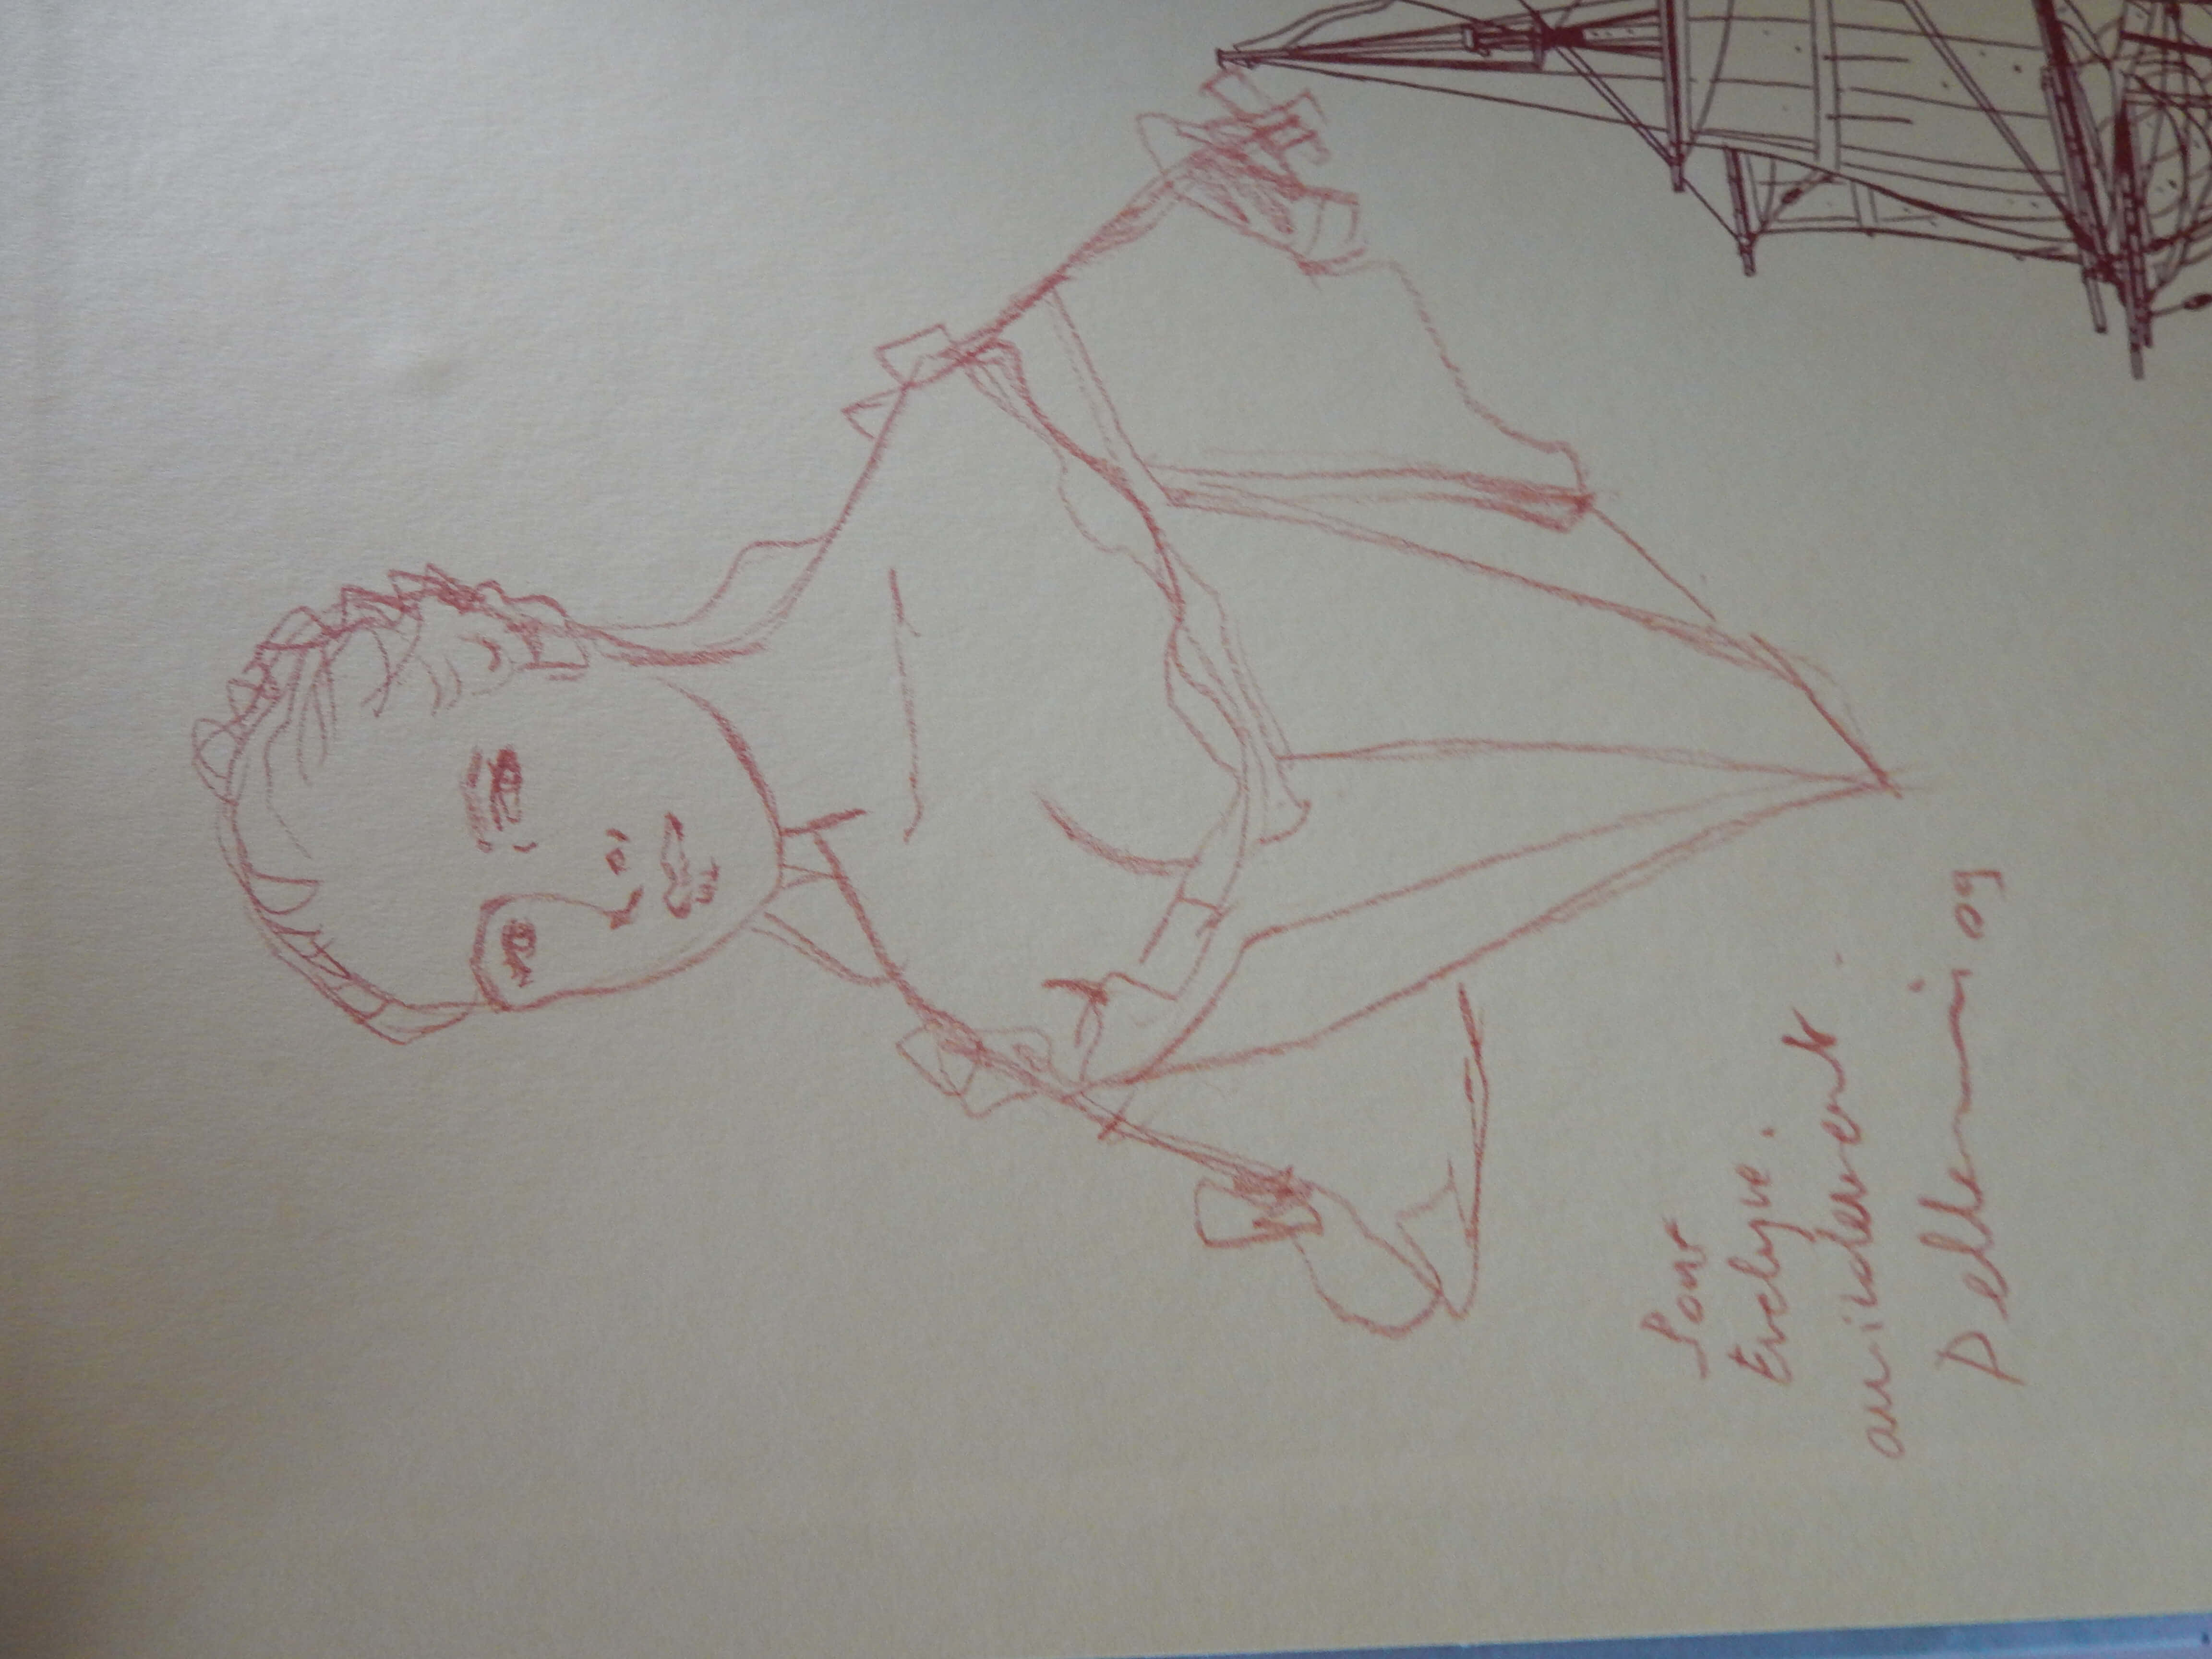 Pour
Evelyne.
amicalement.
Pellerin 09